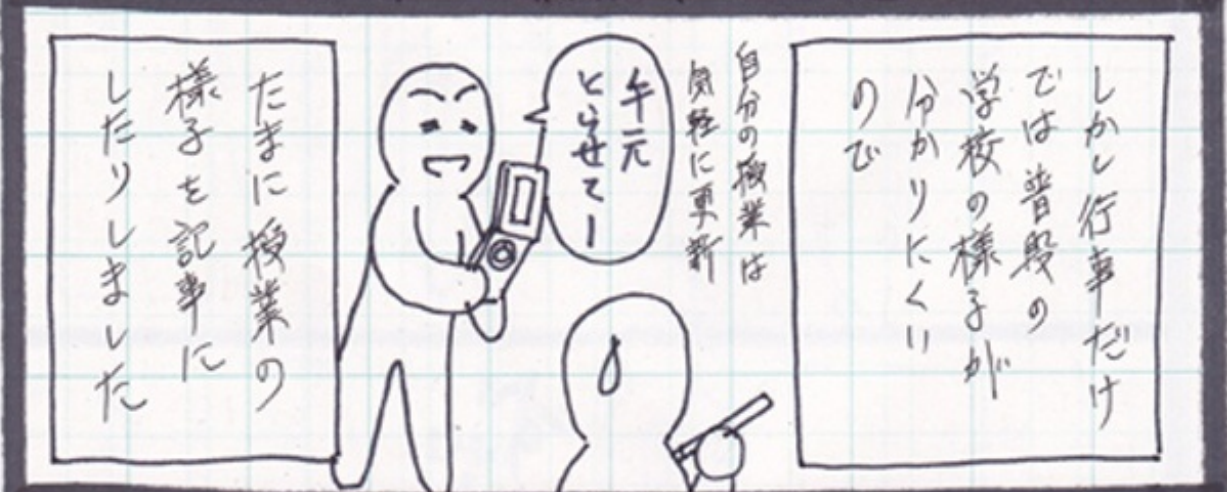 しかし行事だけ
では普段の
学校の様子が
分かりにくい
ので
自分の授業は
気軽に更新
手元
とらせてー
たまに授業の
様子を記事に
したりしました